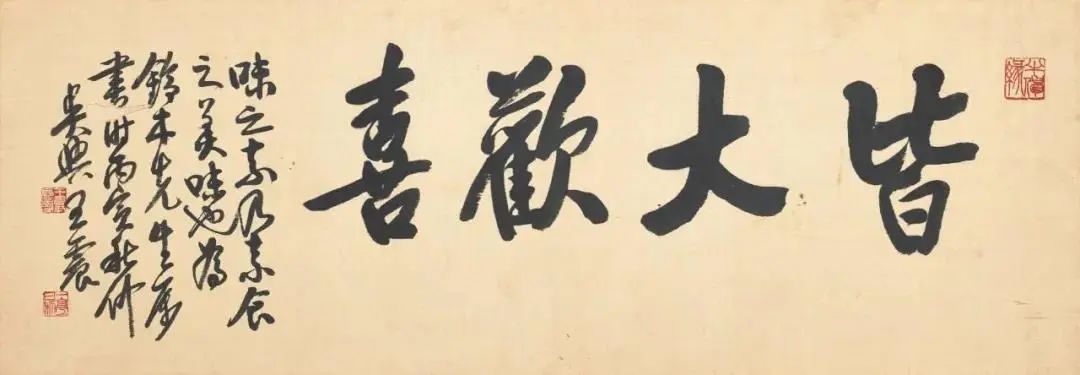 皆大歡喜
味之素乃素食
之美味也為
鈴木先生屬
書時丙寅秋仲
吳興王震